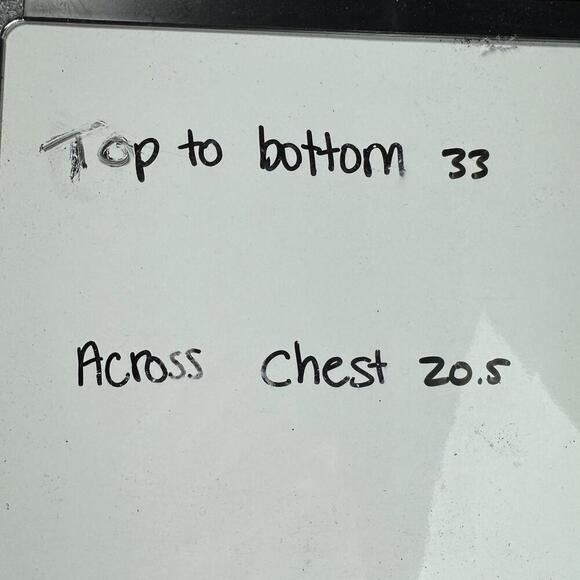 Top to bottom 33
Across Chest 20.5